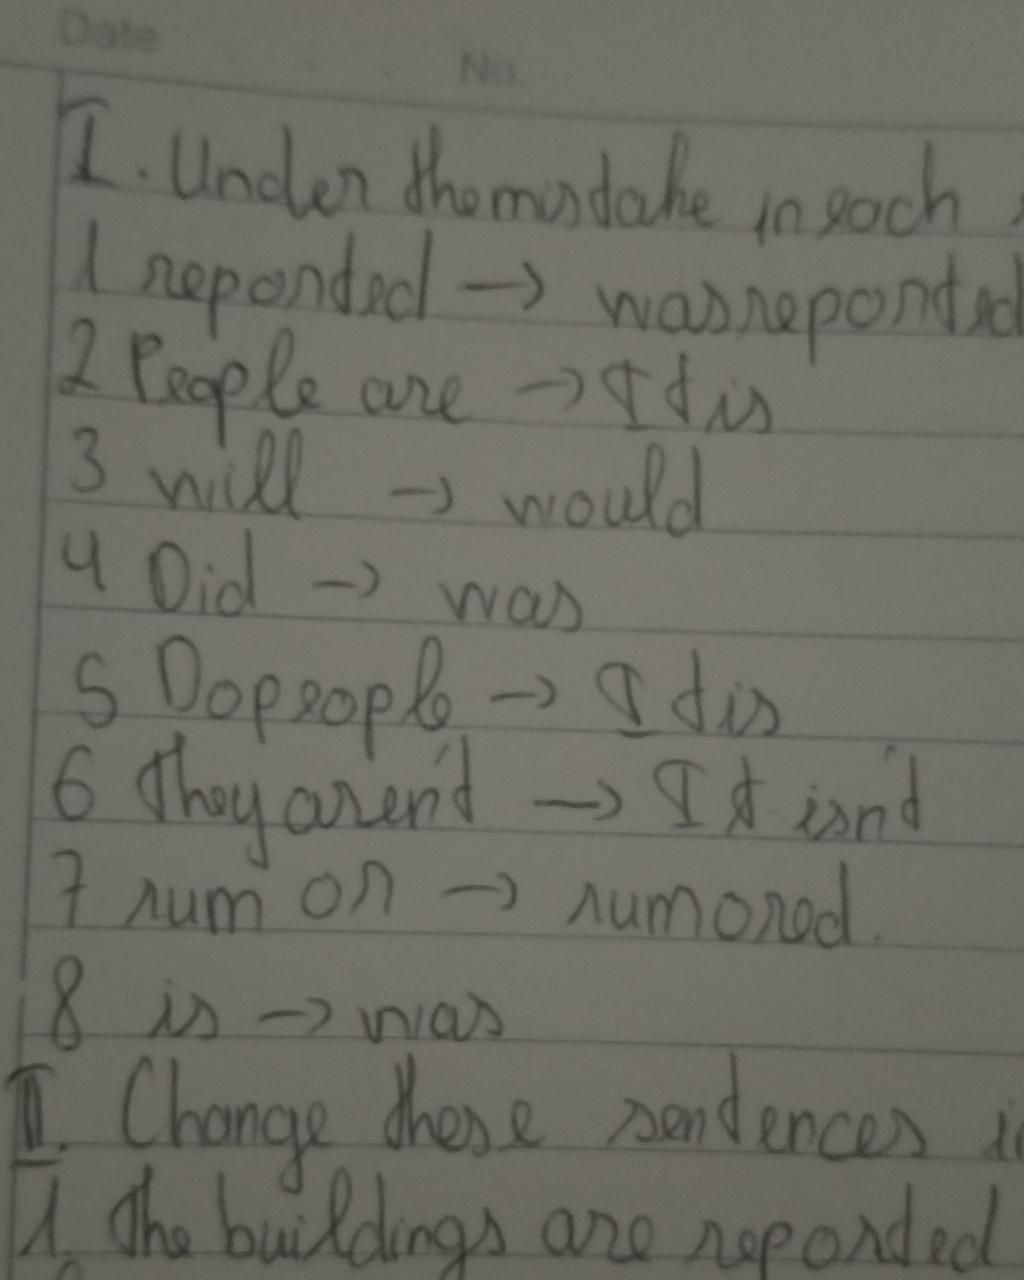 Date
No.
I. Under the mistake in each
1 reported → was reported
2 People are → It is
3 will → would
4 Did → was
5 Do people → It is
6 They aren't → It isn't
7 rum or → rumored.
8 is → was
II. Change these sentences
1. The buildings are reported